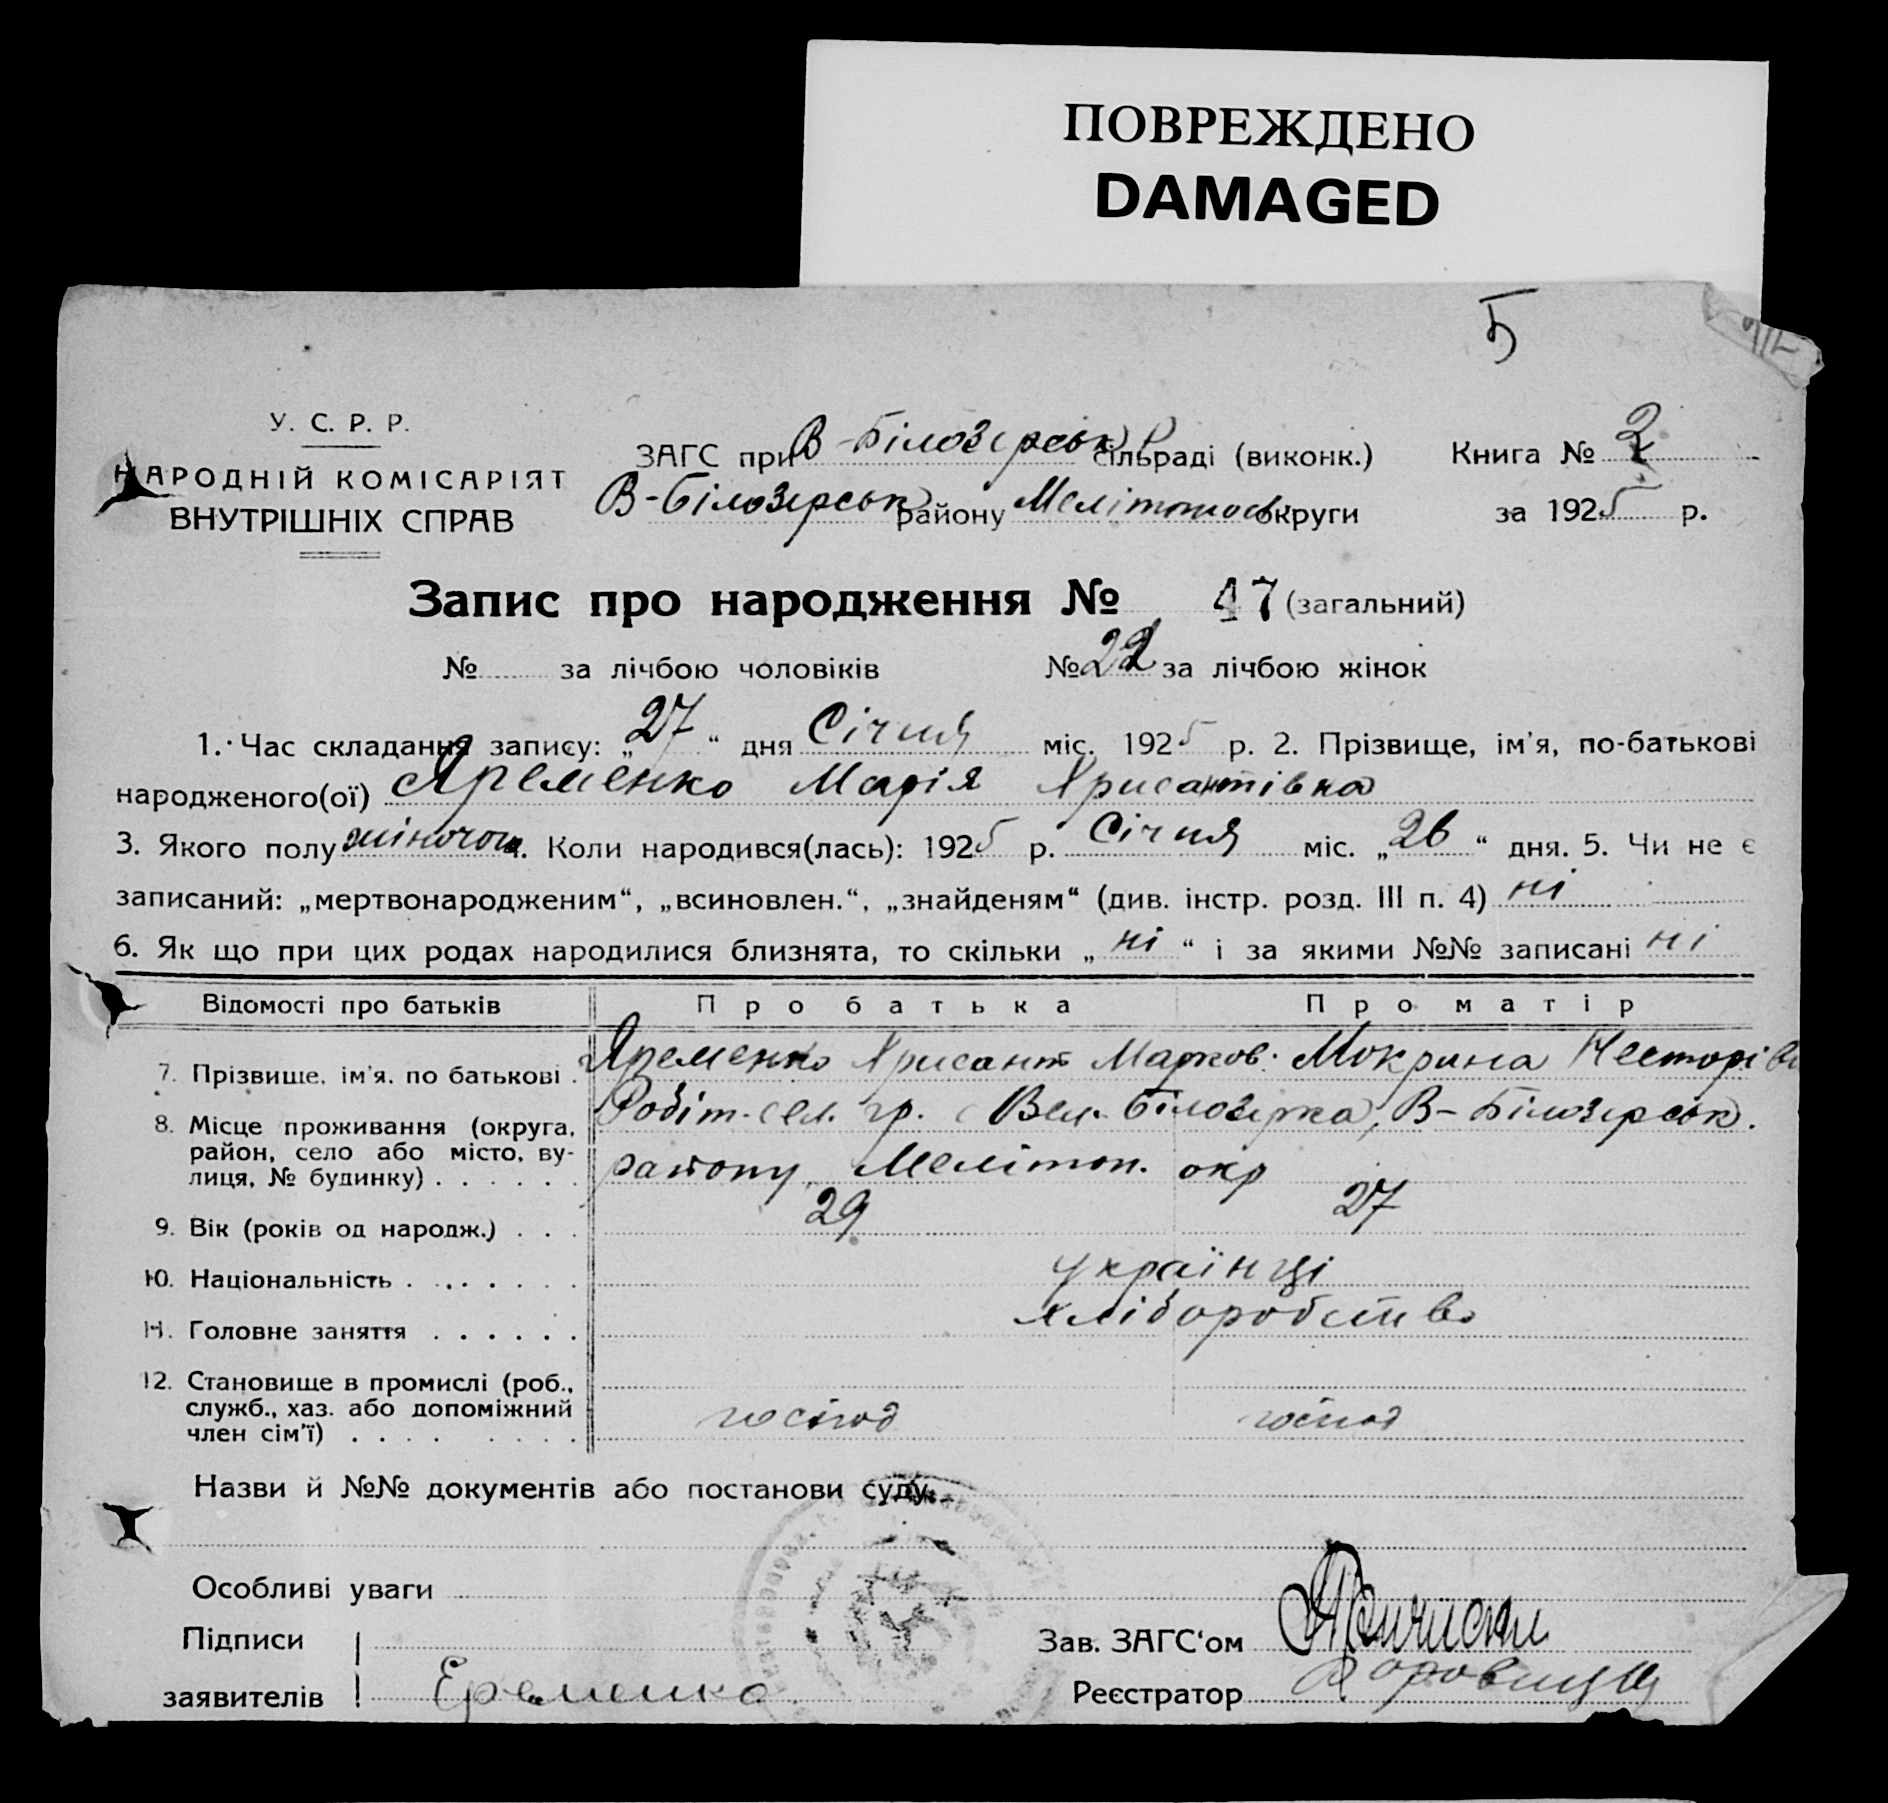 ПОВРЕЖДЕНО
DAMAGED
5
У. С. Р. Р.
НАРОДНІЙ КОМІСАРІЯТ
ВНУТРІШНІХ СПРАВ
ЗАГС при В-Білозерськ сільраді (виконк.) Книга № 2
В-Білозерськ району Мелітопольськ округи за 1925 р.
Запис про народження № 47 (загальний)
№ за лічбою чоловіків № 22 за лічбою жінок
1. Час складання запису: „27“ дня Січня міс. 1925 р. 2. Прізвище, ім'я, по-батькові
народженого(ої) Яременко Марія Хрисантівна
3. Якого полу жіночого 4. Коли народився(лась): 1925 р. Січня міс. „26“ дня. 5. Чи не є
записаний: „мертвонародженим“, „всиновлен.“, „знайденям“ (див. інстр. розд. III п. 4) ні
6. Як що при цих родах народилися близнята, то скільки „ні“ і за якими №№ записані ні
Відомості про батьків Про батька Про матір
7. Прізвище, ім'я, по батькові . Яременко Хрисант Марков. Мокрина Несторівн
8. Місце проживання (округа, район, село або місто, вулиця, № будинку) . . . . . . Робіт. сел. гр. с Вел. Білозерка, В-Білозерськ.
району, Мелітоп. окр
9. Вік (років од народж.) . . . 29 27
10. Національність . . . . . . . українці
11. Головне заняття . . . . . . хліборобство
12. Становище в промислі (роб., служб., хаз. або допоміжний член сім'ї) . . . . . . . . господ господ
Назви й №№ документів або постанови суду
Особливі уваги
Підписи
заявителів Еременко
Зав. ЗАГС'ом
Реєстратор